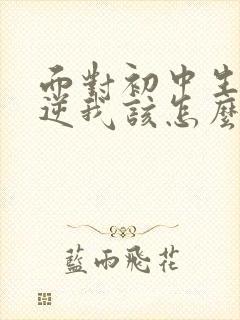 面對初中生
逆我該怎麼
藍雨飛花